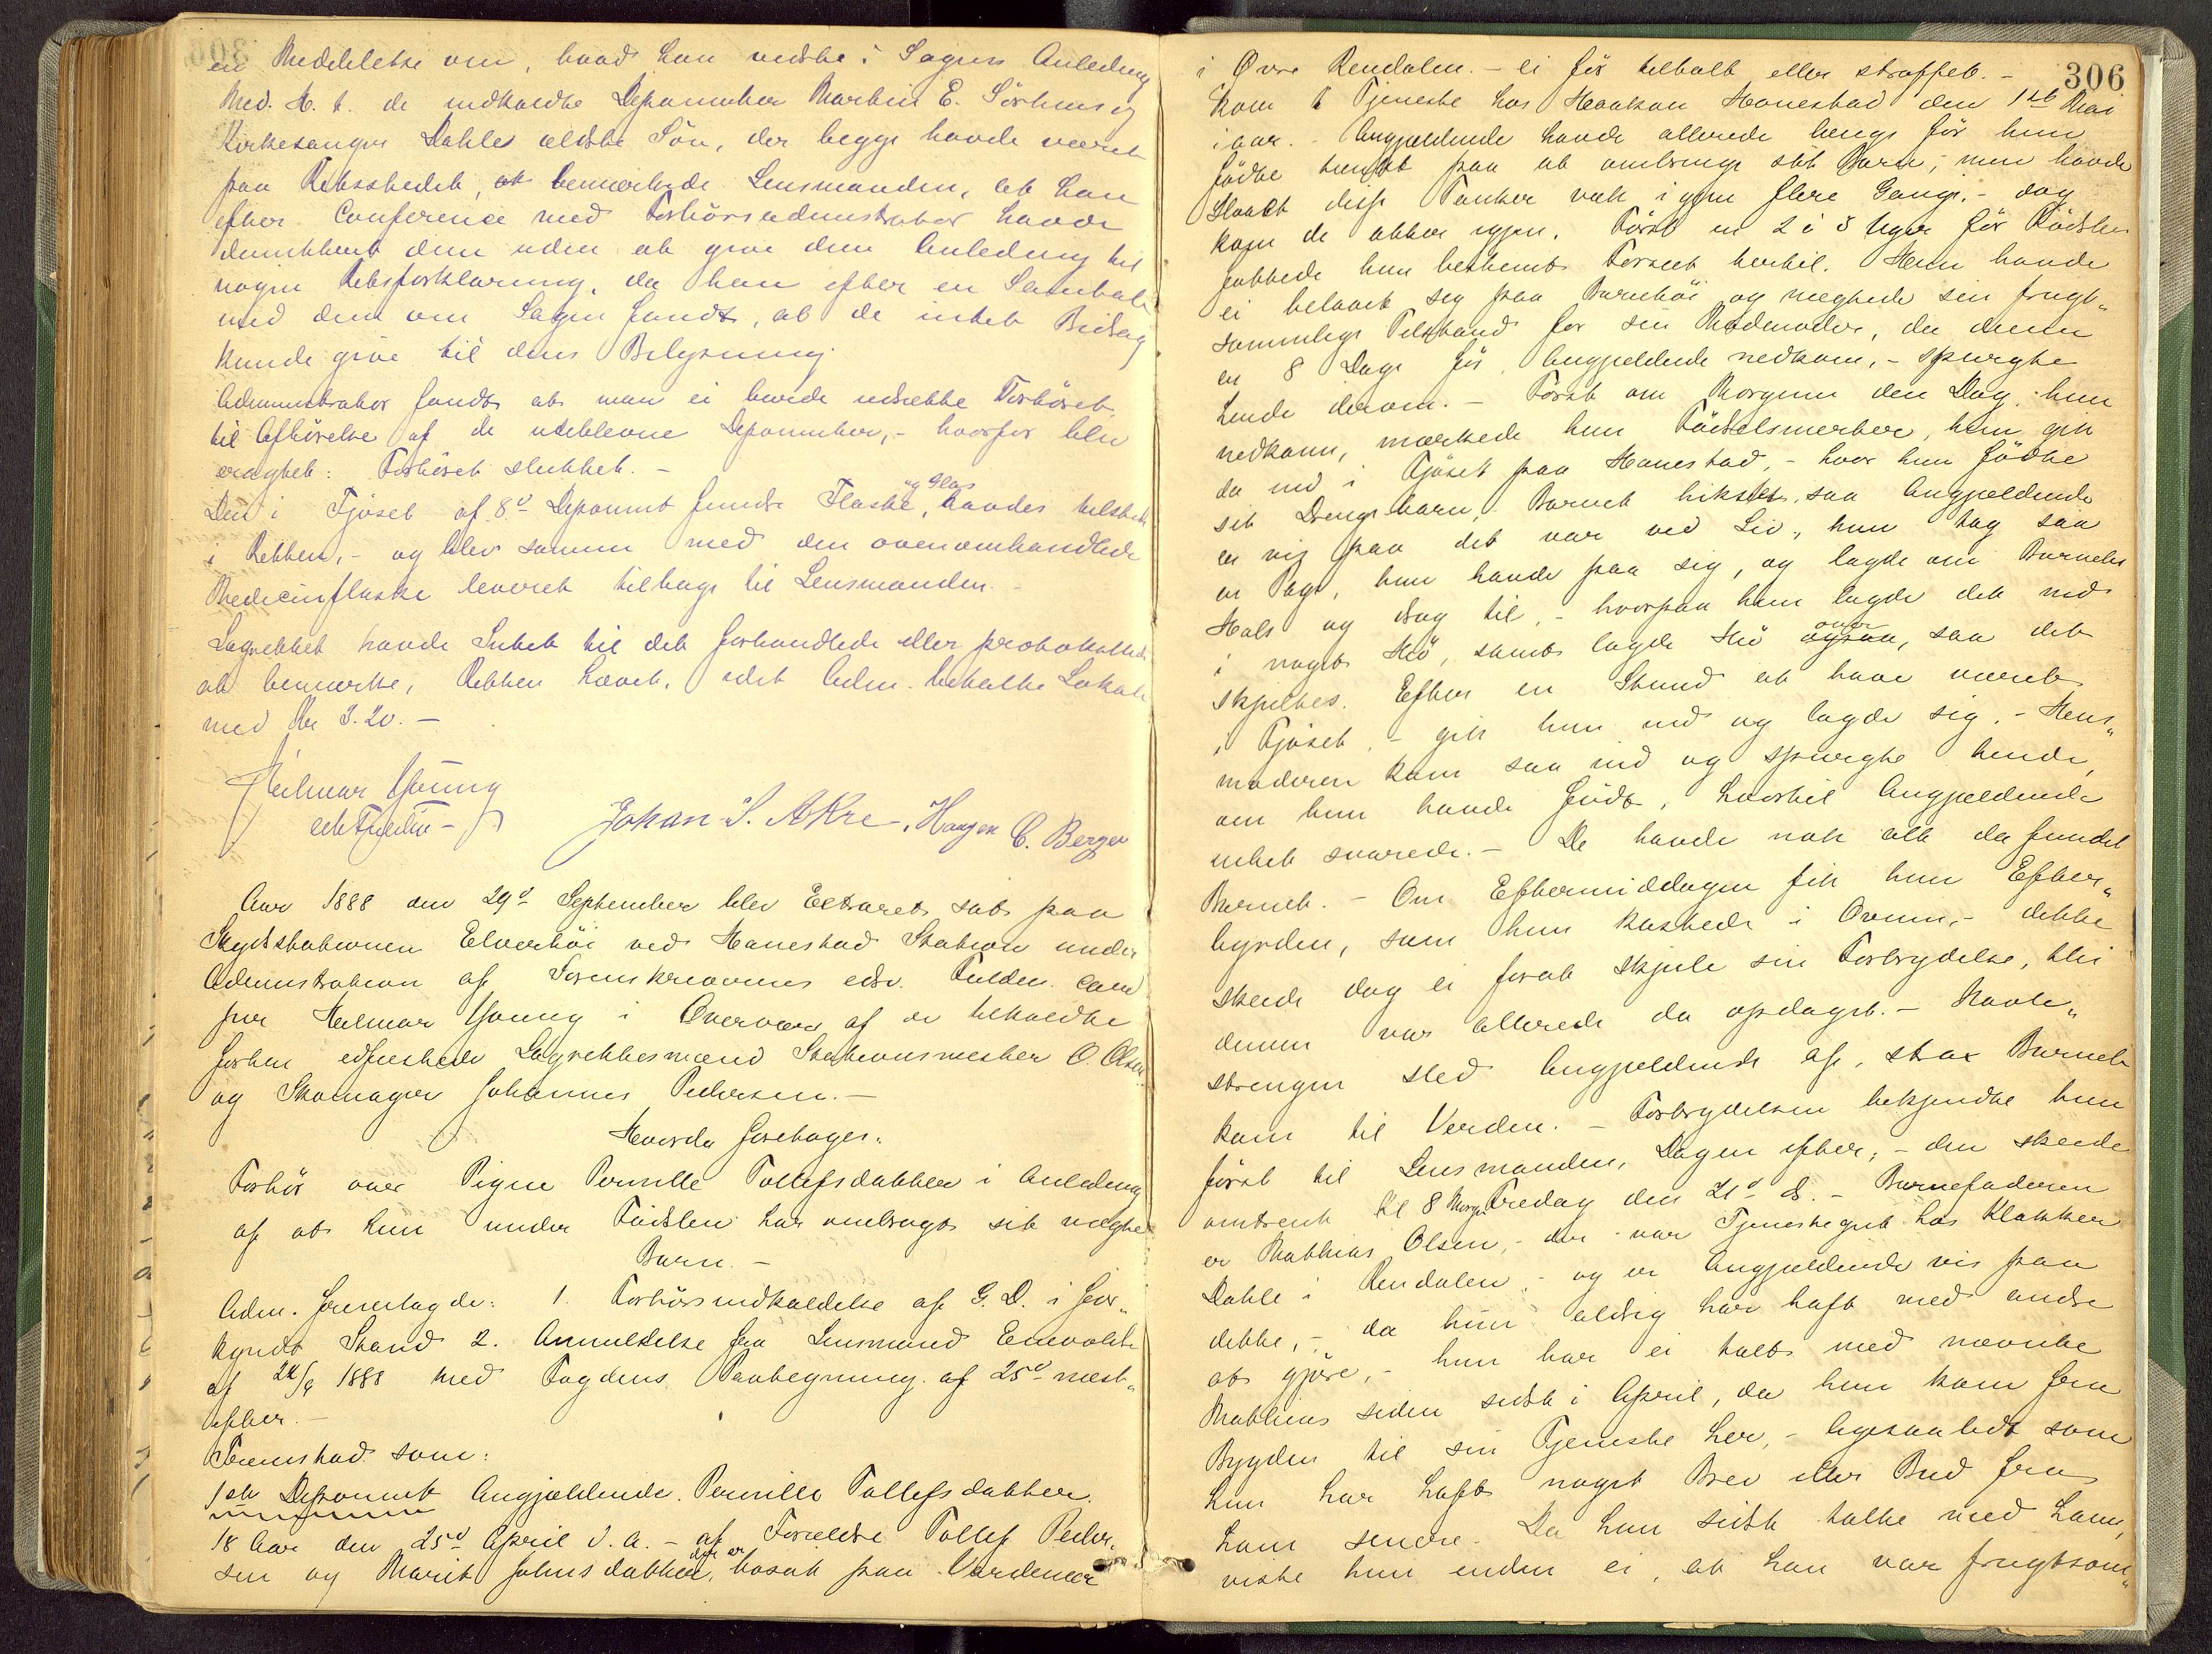 en Meddelelse om, hvad han vidste i Sagens Anledning
Med. H. t. de indkaldte Deponenter Martin E. Sörhuus og
Kirkesanger Dahles ældste Sön, der begge havde været
paa Retsstedet, at bemærkede Lensmanden, at han
efter Conference med Forhörsadministrator havde
dimitteret dem uden at give dem Anledning til
nogen Retsforklaring, da han efter en Samtale
med dem om Sagen fandt, at de intet Bidrag
kunde give til dens Belysning.
Administrator fandt at man ei burde udsætte Forhöret
til Afhörelse af de udeblevne Deponenter, - hvorfor blev
eragtet: Forhöret sluttet. -
Den i Fjöset af 8d Deponent fundne Flaske og Glas, havdes tilstede
i Retten, - og blev sammen med den ovenomhandlede
Medicinflaske leveret tilbage til Lensmanden. -
Lagrettet havde Intet til det forhandlede eller protokollerede
at bemærke, Retten hævet, idet Adm. betalte Lokale
med Kr 3.20. -
Hilmar Young
edsv. Fuldm -
Johan S. Akre, Haagen C. Berger
Aar 1888 den 29d September blev Extraret sat paa
Skydsstationen Elverhöi ved Hanestad Station under
Administration af Sorenskriverens edsv. Fuldm. cand
jur Hilmar Young i Overvær af de tilkaldte
forhen edfæstede Lagrettesmænd Stationsmester O. Olsen
og Skomager Johannes Pedersen. -
Hvorda foretages:
Forhör over Pigen Pernille Tollefsdatter i Anledning
af at hun under Födslen har ombragt sit uægte
Barn. -
Adm. fremlagde: 1. Forhörsindkaldelse af G. D. i for„
kyndt Stand 2. Anmeldelse fra Lensmand Enevoldsen
af 24/9 1888 med Fogdens Paategning af 25d næst„
efter. -
Fremstod som:
1ste Deponent Angjældende Pernille Tollefsdatter.
18 Aar den 25d April d. A. - af Forældre Tollef Peder„
sen og Marit Johnsdatter, der er bosat paa Vardemoe
306
i Øvre Rendalen. - ei för tiltalt eller straffet. -
Kom i Tjeneste hos Haakon Hanestad den 1ste Mai
iaar. - Angjældende havde allerede længe för hun
födte tænkt paa at ombringe sit Barn, men havde
slaaet disse Tanker væk igjen flere Gange, - dog
kom de atter igjen. Först en 2 à 3 Uger för Födslen
fattede hun bestemt Forsæt hertil. Hun havde
ei belavet sig paa Barnetöi og nægtede sin frugt„
sommelige Tilstand for sin Madmoder, da denne
en 8 Dage för Angjældende nedkom, - spurgte
hende derom. - Först om Morgenen den Dag hun
nedkom, mærkede hun Födselsmerter, hun gik
da ud i Fjöset paa Hanestad, - hvor hun födte
sit Drengebarn, Barnet hikstet, saa Angjældende
er vis paa det var ved Liv, hun tog saa
en Page, hun havde paa sig, og lagde om Barnets
Hals og drog til, - hvorpaa hun lagde det ned
i noget Hö, samt lagde Hö ogsaa over, saa det
skjultes. Efter en Stund at have været
i Fjöset, - gik hun ind og lagde sig. - Hus„
moderen kom saa ind og spurgte hende,
om hun havde födt, hvortil Angjældende
intet svarede. - De havde nok alt da fundet
Barnet. - Om Eftermiddagen fik hun Efter„
byrden, som hun kastede i Ovnen, - dette
skede dog ei forat skjule sin Forbrydelse, thi
denne var allerede da opdaget. - Navle„
strengen sled Angjældende af, strax Barnet
kom til Verden. - Forbrydelsen bekjendte hun
först til Lensmanden, Dagen efter, - den skede
omtrent Kl 8 Morgen Fredag den 21d ds. - Barnefaderen
er Mathias Olsen, - der var Tjenestegut hos Klokker
Dahle i Rendalen, - og er Angjældende vis paa
dette, - da hun aldrig har haft med andre
at gjöre, - hun har ei talt med nævnte
Mathias siden sidst i April, da hun kom fra
Bygden til sin Tjeneste her, - ligesaalidt som
hun har haft noget Brev eller Bud fra
ham senere. Da hun sidst talte med ham,
vidste hun endnu ei, at hun var frugtsom„